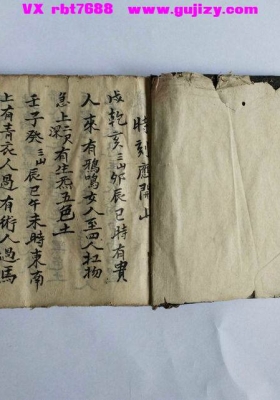 VX rbt7688 www.gujizy.com
時刻應開山
戌乾亥三山卯辰巳時有貴
人來有鴉鳴女人至四人扛物
急上深二尺有生炁五色土
壬子癸三山辰巳午未時東南
上有青衣人過有術人過馬